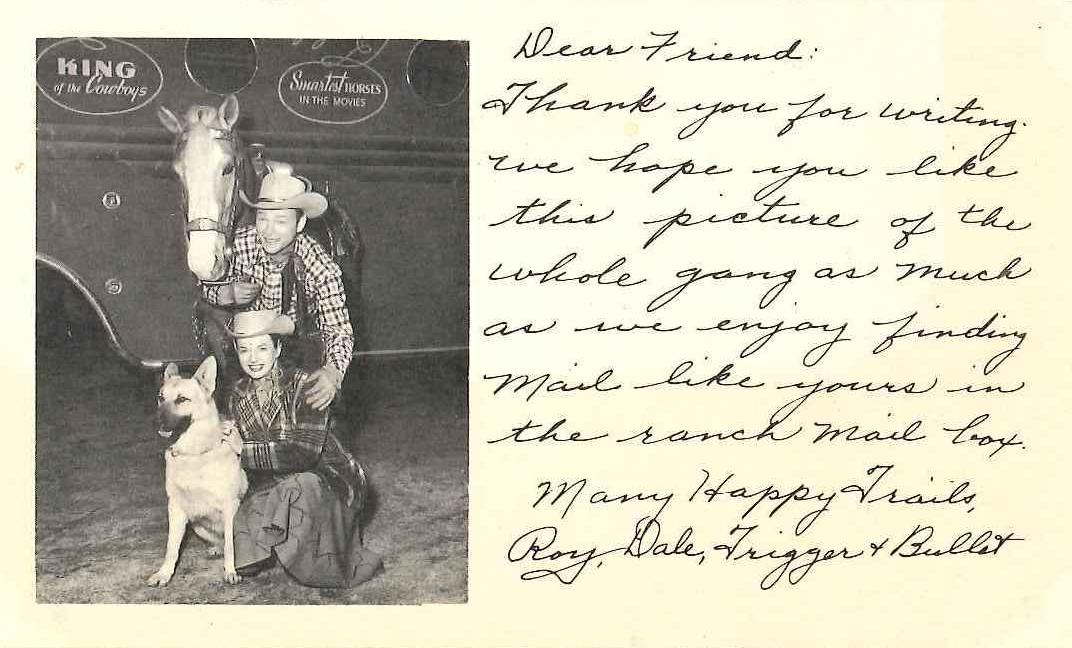 KING
of the Cowboys
Smartest HORSES
IN THE MOVIES
Dear Friend:
Thank you for writing.
we hope you like
this picture of the
whole gang as much
as we enjoy finding
Mail like yours in
the ranch Mail box.
Many Happy Trails,
Roy, Dale, Trigger + Bullet